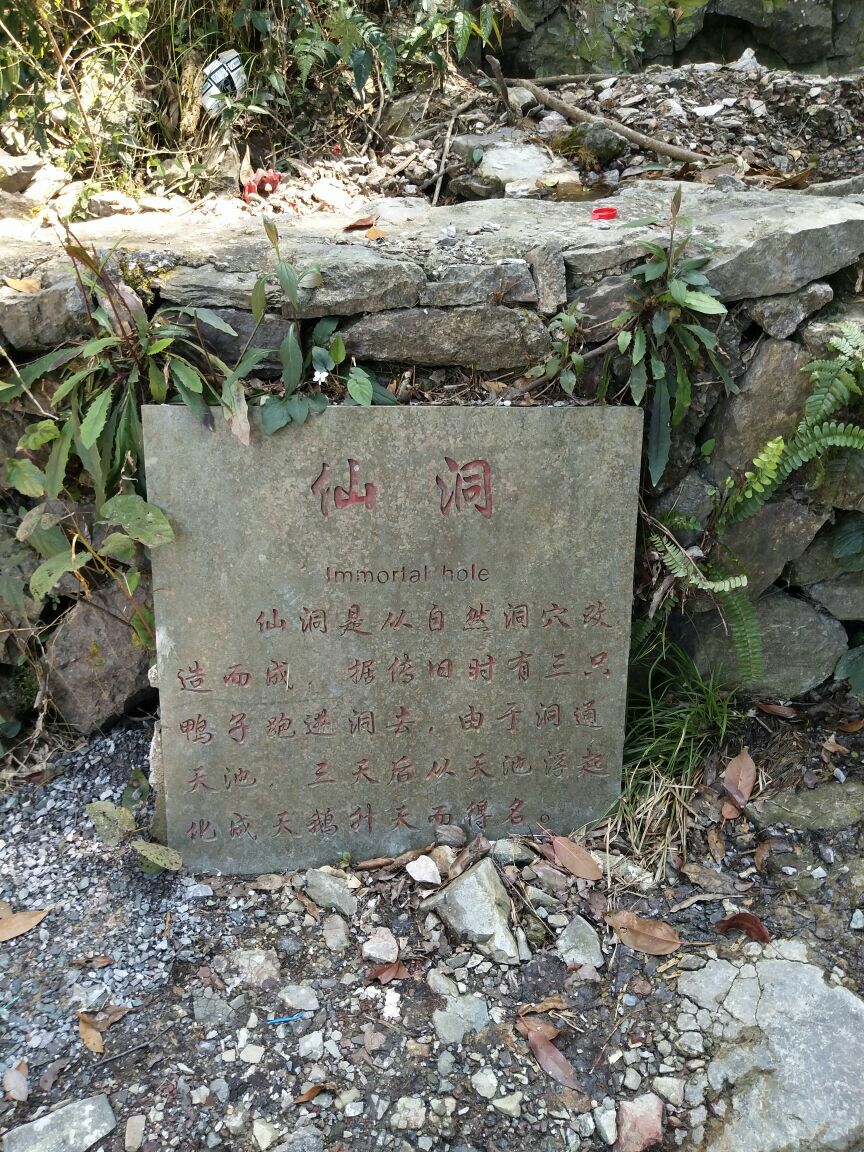 仙洞
Immortal hole
仙洞是从自然洞穴改
造而成，据传旧时有三只
鸭子跑进洞去，由于洞通
天池，三天后从天池浮起
化成天鹅升天而得名。